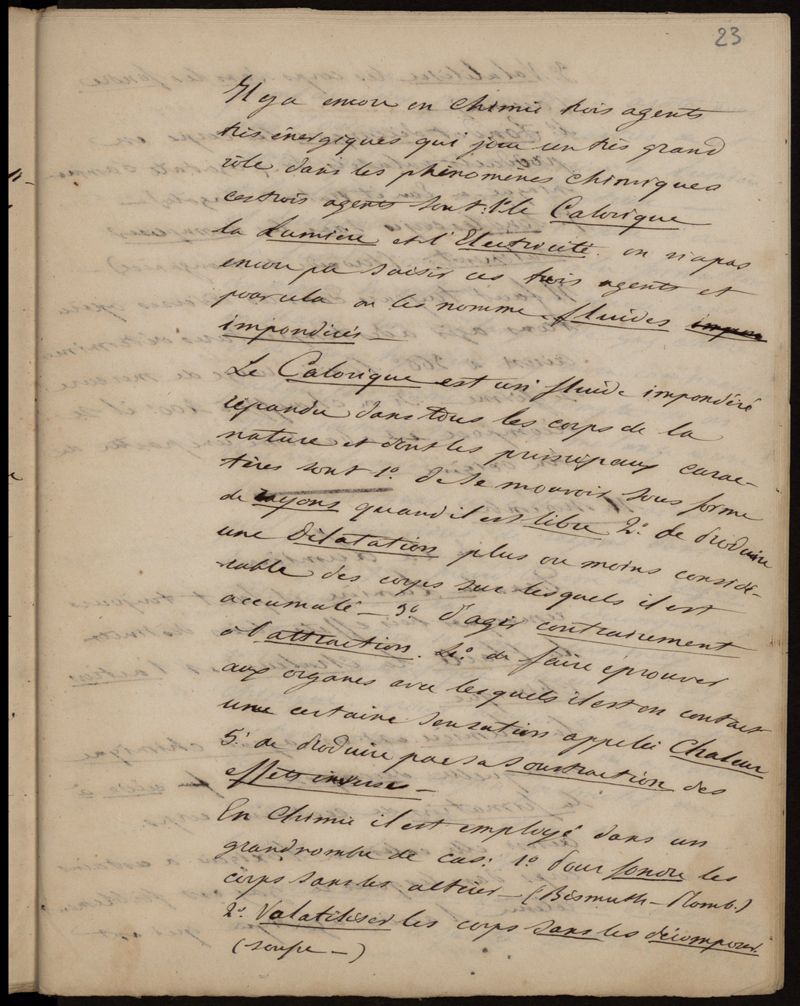 23
Il y a encore en chimie trois agents
très énergiques qui joue un très grand
rôle dans les phénomènes chimiques
ces trois agents sont: 1º le Calorique
la Lumière et l'Electricité. on n'a pas
encore pu saisir ces trois agents et
pour cela on les nomme fluides
impondérés —
Le Calorique est un fluide impondéré
répandu dans tous les corps de la
nature et dont les principaux carac-
tères sont 1º. de se mouvoir sous forme
de rayons quand il est libre 2º. de produire
une dilatation plus ou moins considé-
rable des corps sur lesquels il est
accumulé — 3º d'agir contrairement
à l'attraction. 4º. de faire éprouver
aux organes avec lesquels il est en contact
une certaine sensation appelée Chaleur
5º. de produire par sa soustraction des
effets inverses —
En Chimie il est employé dans un
grand nombre de cas: 1º Pour fondre les
corps sans les altérer — (Bismuth — Plomb.)
2º. Volatiliser les corps sans les décomposer.
(soufre —)